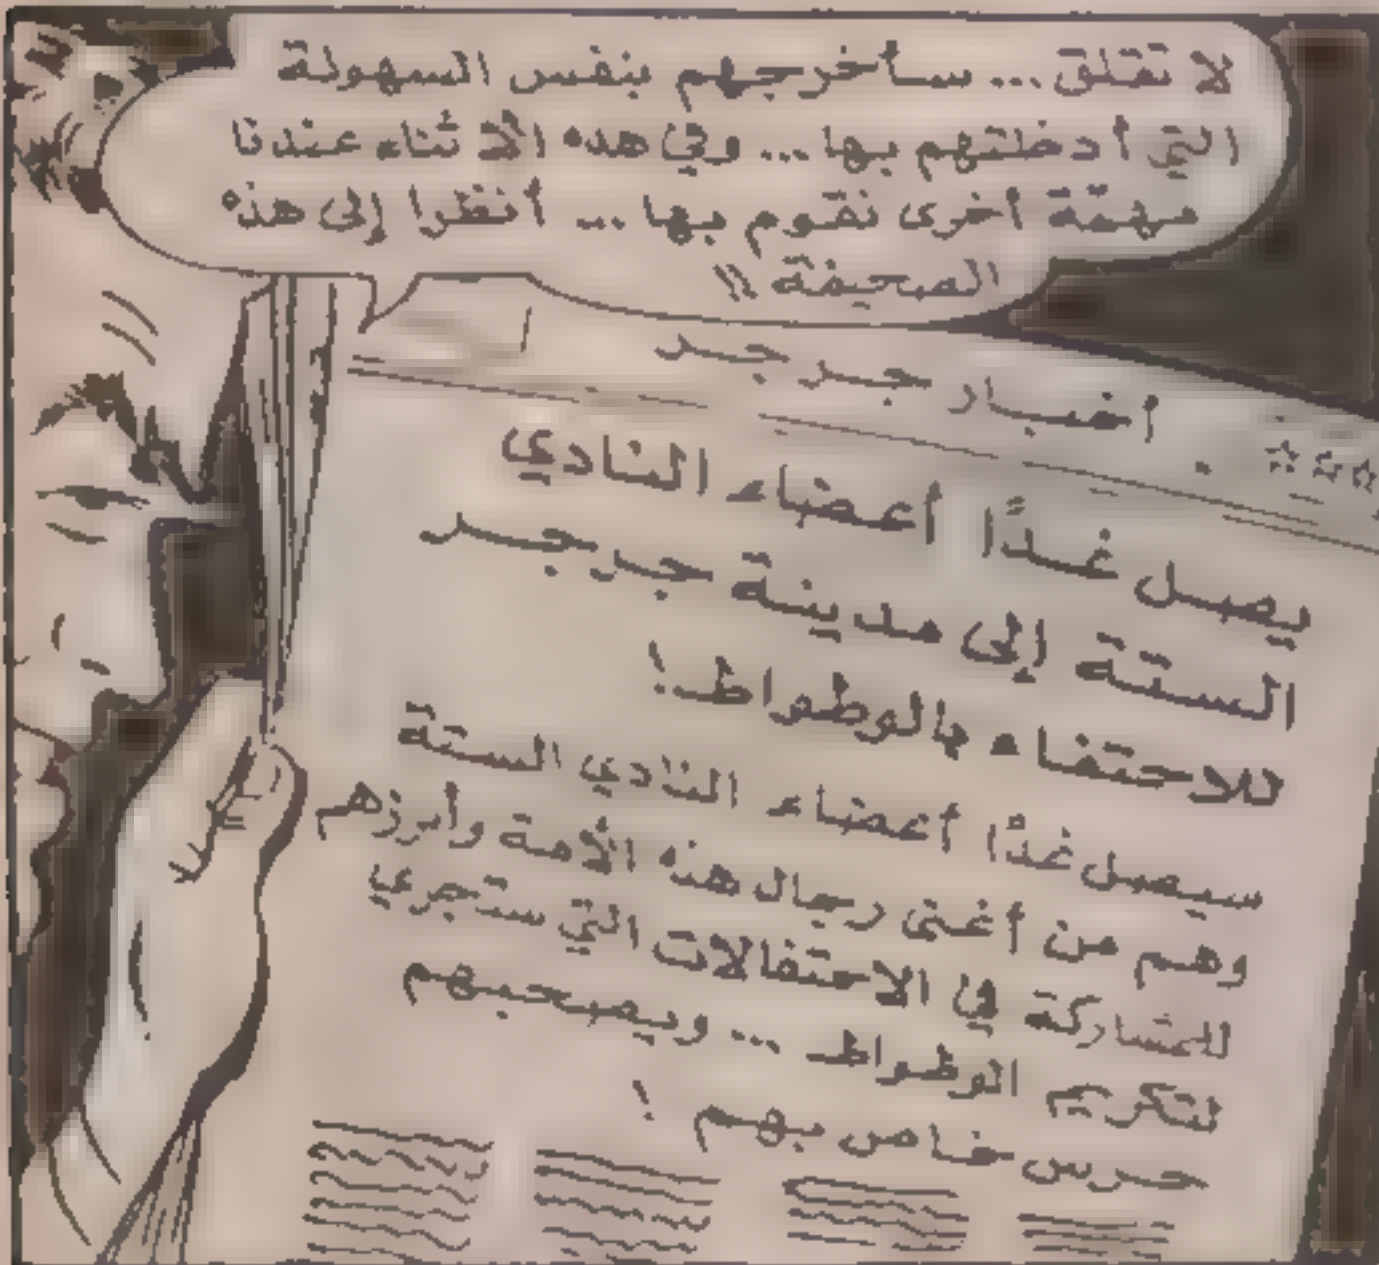 لا تقلق ... سأخرجهم بنفس السهولة
التي أدخلتهم بها ... وفي هذه الأثناء عندنا
مهمّة أخرى نقوم بها ... أنظروا إلى هذه
الصحيفة !!
أخبار جرجر
يصل غدًا أعضاء النادي
الستة إلى مدينة جرجر
للاحتفاء بالوطواط !
سيصل غدًا أعضاء النادي الستة
وهم من أغنى رجال هذه الأمة وأبرزهم
للمشاركة في الاحتفالات التي ستجري
لتكريم الوطواط ... ويصحبهم
حرس خاص بهم !